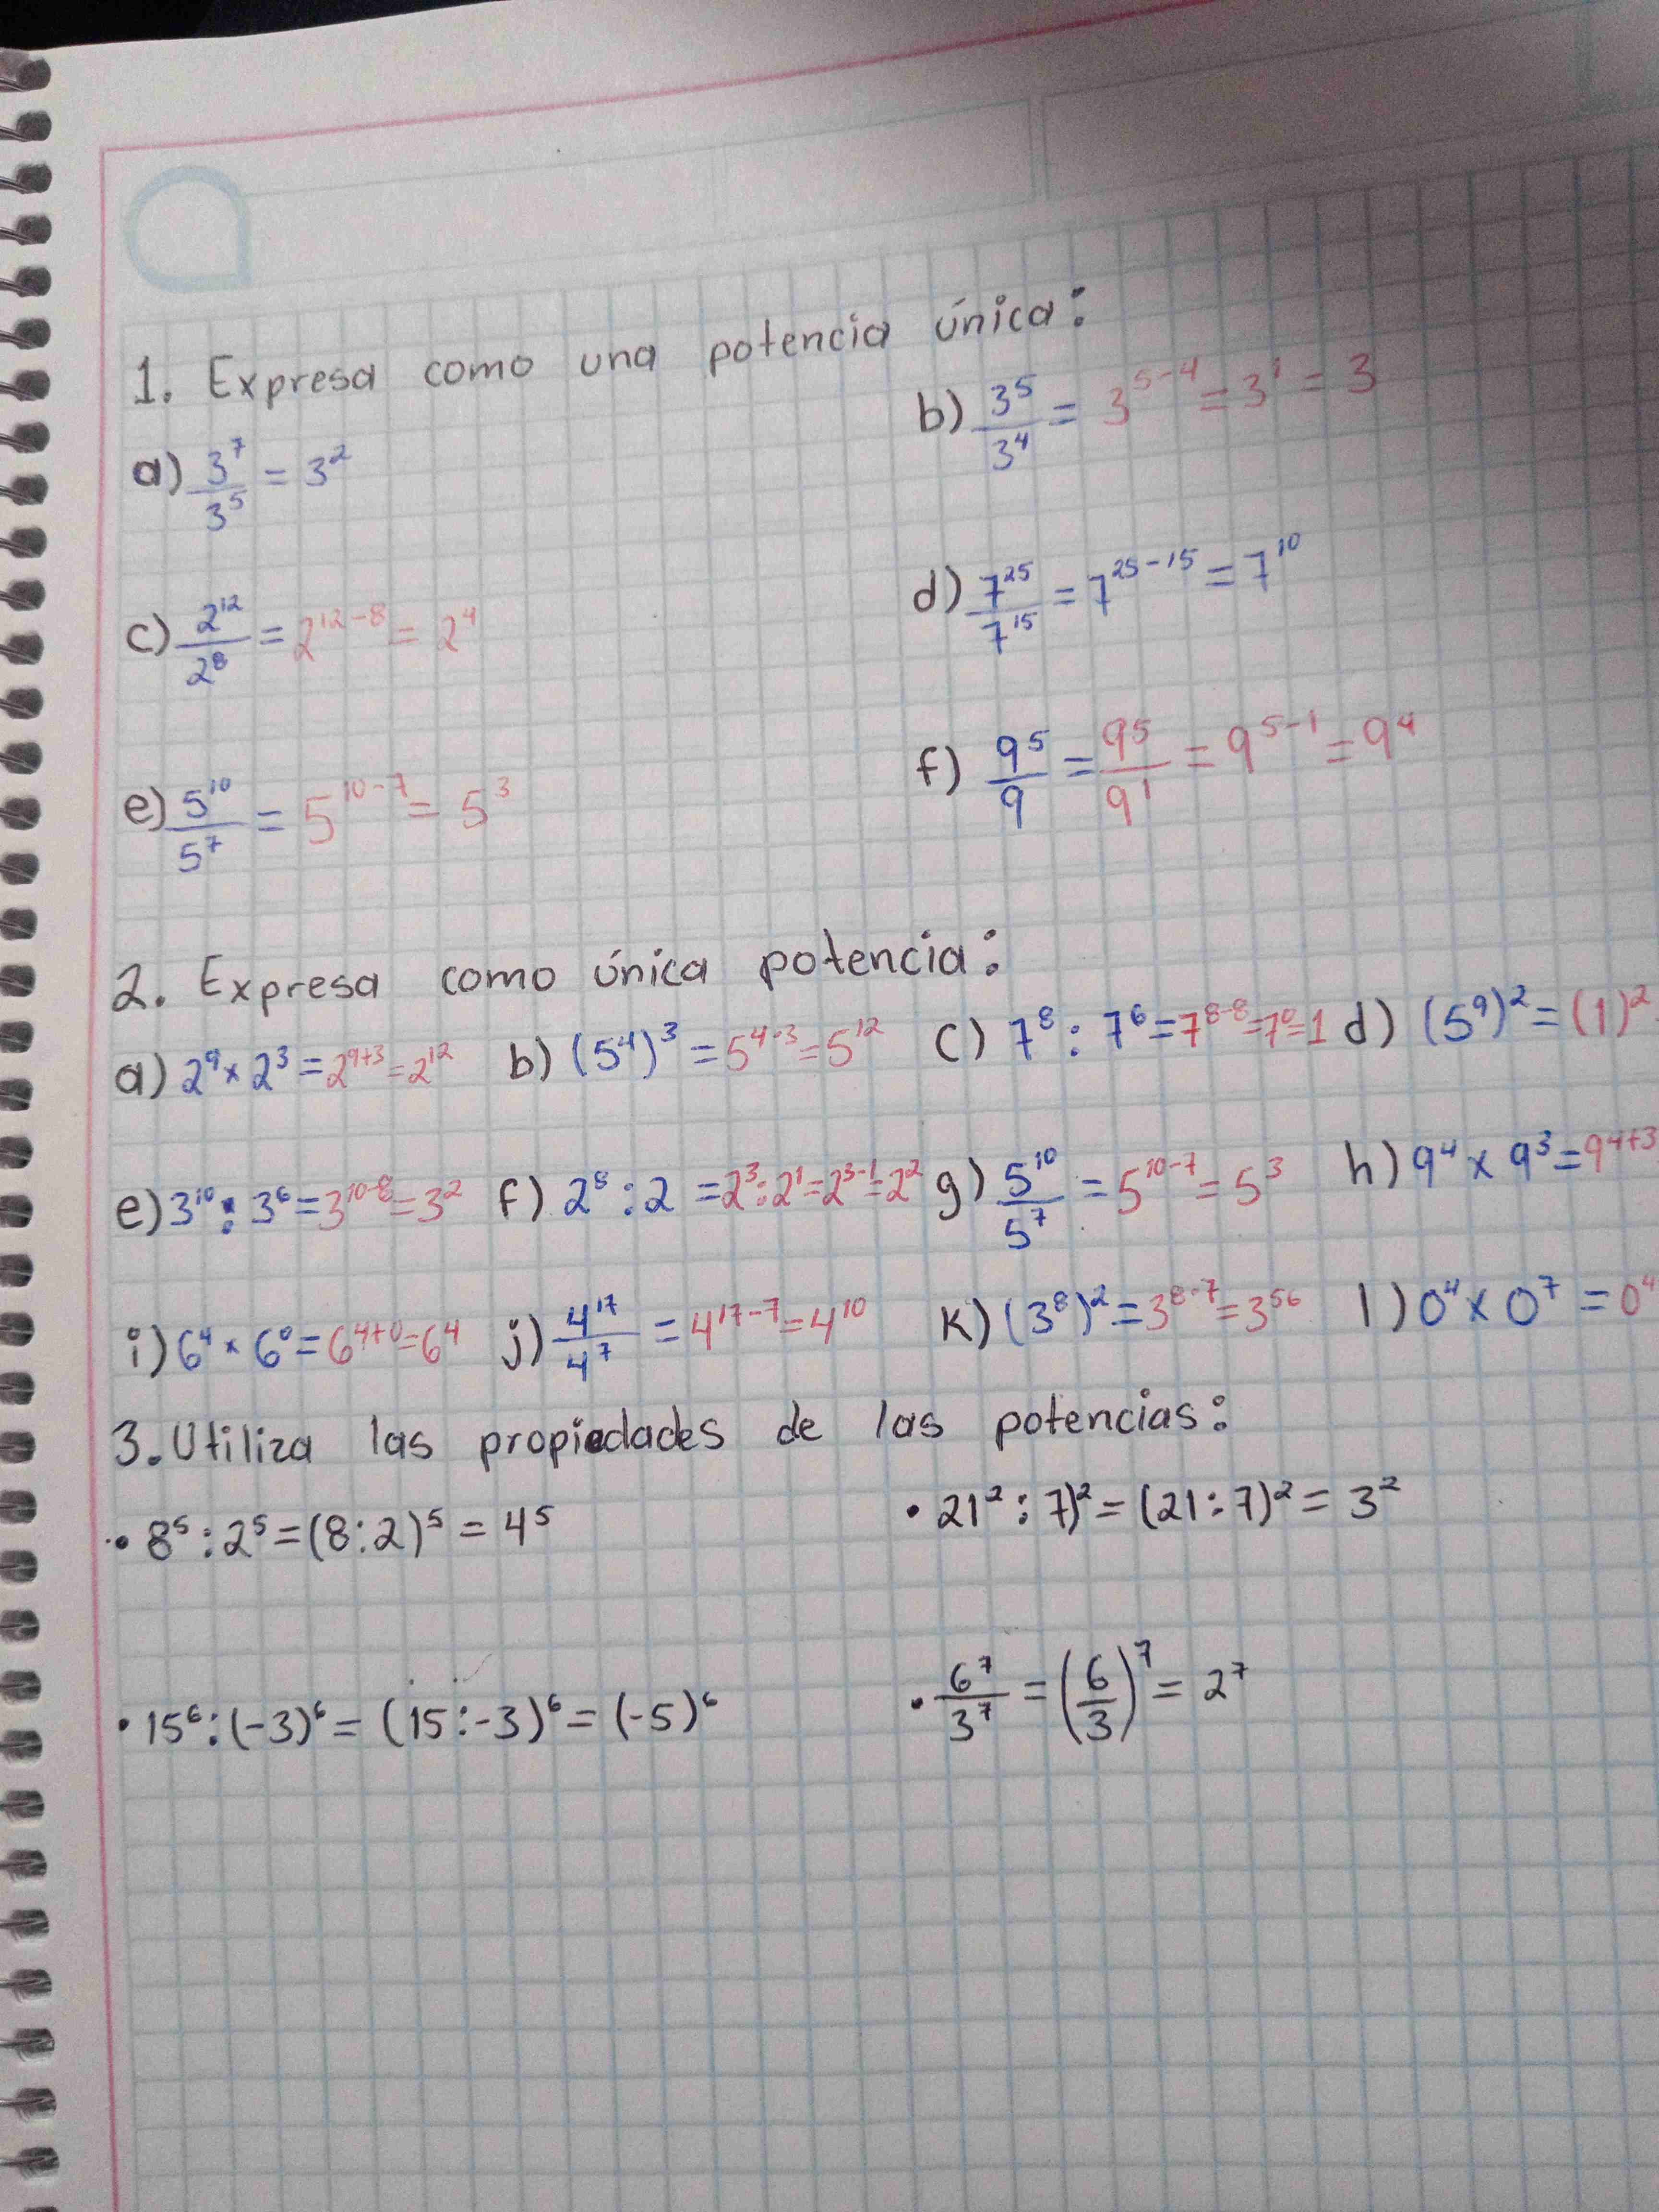 1. Expresa como una potencia única:
a) 3⁷/3⁵ = 3²
b) 3⁵/3⁴ = 3⁵⁻⁴ = 3¹ = 3
c) 2¹²/2⁸ = 2¹²⁻⁸ = 2⁴
d) 7²⁵/7¹⁵ = 7²⁵⁻¹⁵ = 7¹⁰
e) 5¹⁰/5⁷ = 5¹⁰⁻⁷ = 5³
f) 9⁵/9 = 9⁵/9¹ = 9⁵⁻¹ = 9⁴
2. Expresa como única potencia:
a) 2⁹ × 2³ = 2⁹⁺³ = 2¹² b) (5⁴)³ = 5⁴·³ = 5¹² c) 7⁸ : 7⁶ = 7⁸⁻⁸ = 7⁰ = 1 d) (5⁹)² = (1)²
e) 3¹⁰ : 3⁶ = 3¹⁰⁻⁸ = 3² f) 2⁸ : 2 = 2³ : 2¹ = 2³⁻¹ = 2² g) 5¹⁰/5⁷ = 5¹⁰⁻⁷ = 5³ h) 9⁴ × 9³ = 9⁴⁺³
i) 6⁴ × 6⁰ = 6⁴⁺⁰ = 6⁴ j) 4¹⁷/4⁷ = 4¹⁷⁻⁷ = 4¹⁰ k) (3⁸)² = 3⁸⁻⁷ = 3⁵⁶ l) 0⁴ × 0⁷ = 0⁴
3. Utiliza las propiedades de las potencias:
• 8⁵ : 2⁵ = (8 : 2)⁵ = 4⁵
• 21² : 7)² = (21 : 7)² = 3²
• 15⁶ : (-3)⁶ = (15 : -3)⁶ = (-5)⁶
• 6⁷/3⁷ = (6/3)⁷ = 2⁷